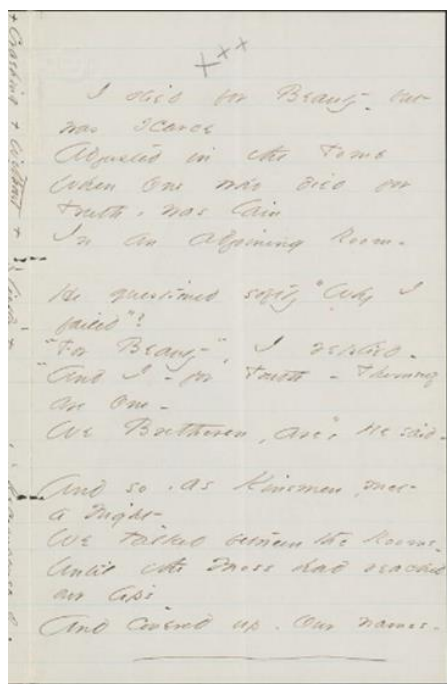 I died for Beauty - but
was scarce
Adjusted in the Tomb
When One who died for
Truth, was lain
In an adjoining Room -
He questioned softly "Why I
failed"?
"For Beauty", I replied -
"And I - for Truth - Themself
are One -
We Bretheren, are", He said -
And so, as Kinsmen, met
a Night -
We talked between the Rooms -
Until the Moss had reached
our lips
And covered up - Our names -